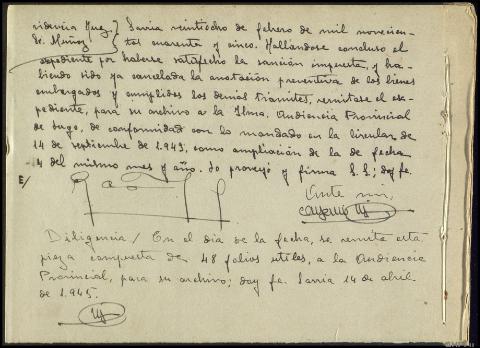 videncia Juez } Sarria veintiocho de febrero de mil novecien-
Sr. Muñoz } tos cuarenta y cinco. Hallándose concluso el
expediente por haberse satisfecho la sanción impuesta, y ha-
biendo sido ya cancelada la anotación preventiva de los bienes
embargados y cumplidos los demás trámites, remítase el ex-
pediente, para su archivo a la Iltma. Audiencia Provincial
de Lugo, de conformidad con lo mandado en la circular de
14 de septiembre de 1.943, como ampliación de la de fecha
4 del mismo mes y año. Lo proveyó y firma S.S.; doy fe.
E/
Ante mí,
Diligencia / En el día de la fecha, se remite esta
pieza compuesta de 48 folios útiles, a la Audiencia
Provincial, para su archivo; doy fe. Sarria 14 de abril
de 1.945.